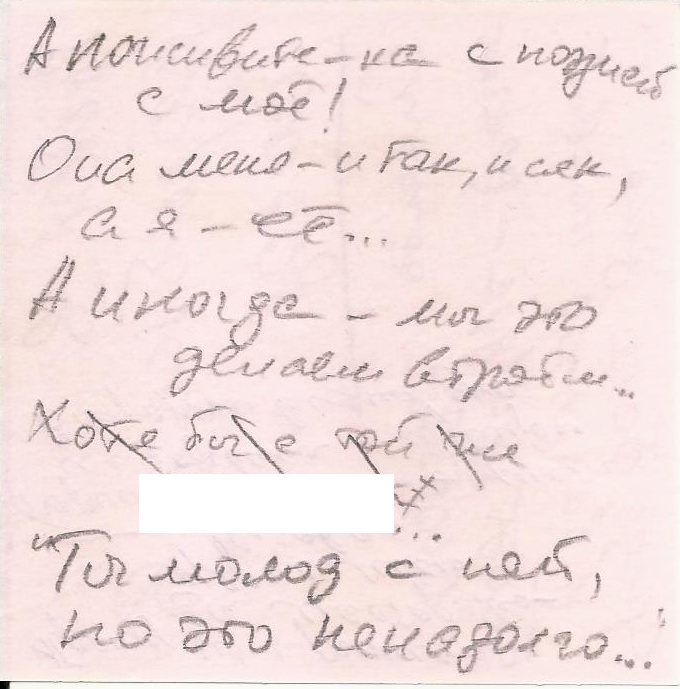 А поживите-ка с поэзией
с моё!
Она меня – и так, и сяк,
а я – её...
А иногда – мы это
делаем втроём...
Хотя бы с
...
"Ты молод с ней,
но это ненадолго..."